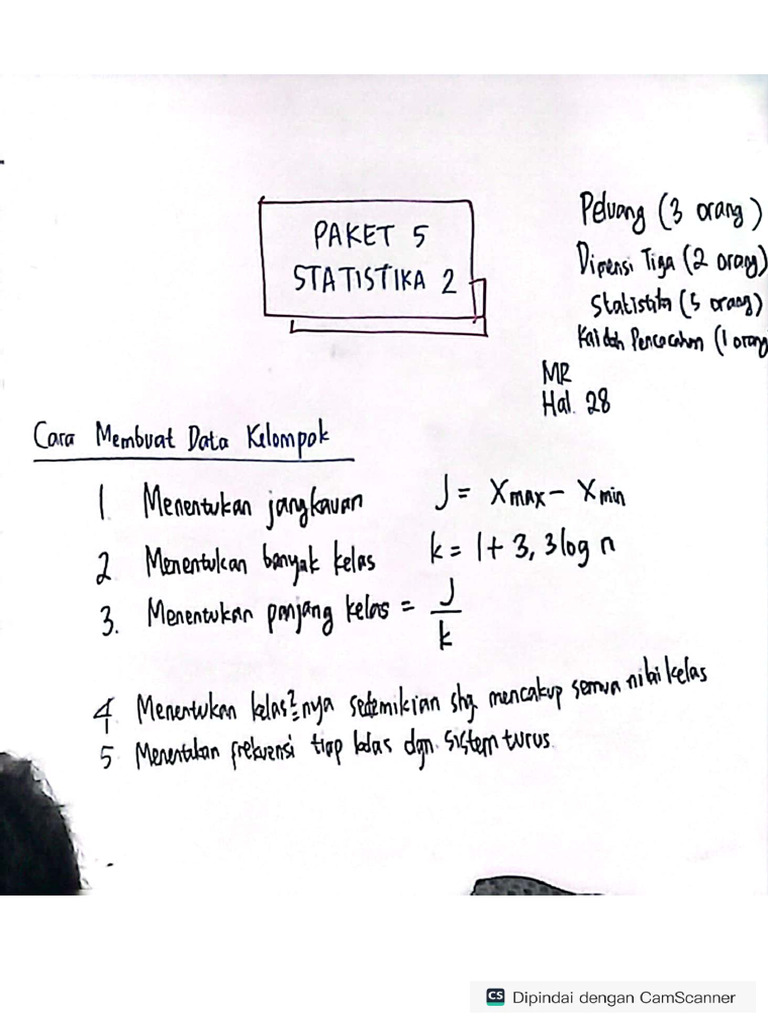 PAKET 5
STATISTIKA 2
Peluang (3 orang)
Dimensi Tiga (2 orang)
Statistika (5 orang)
Kaidah Pencacahan (1 orang
MR
Hal. 28
Cara Membuat Data Kelompok
1. Menentukan jangkauan J = Xmax - Xmin
2. Menentukan banyak kelas k = 1 + 3,3 log n
3. Menentukan panjang kelas = J/k
4. Menentukan kelas²nya sedemikian shg. mencakup semua nilai kelas
5. Menentukan frekuensi tiap kelas dgn. sistem turus.
CS Dipindai dengan CamScanner